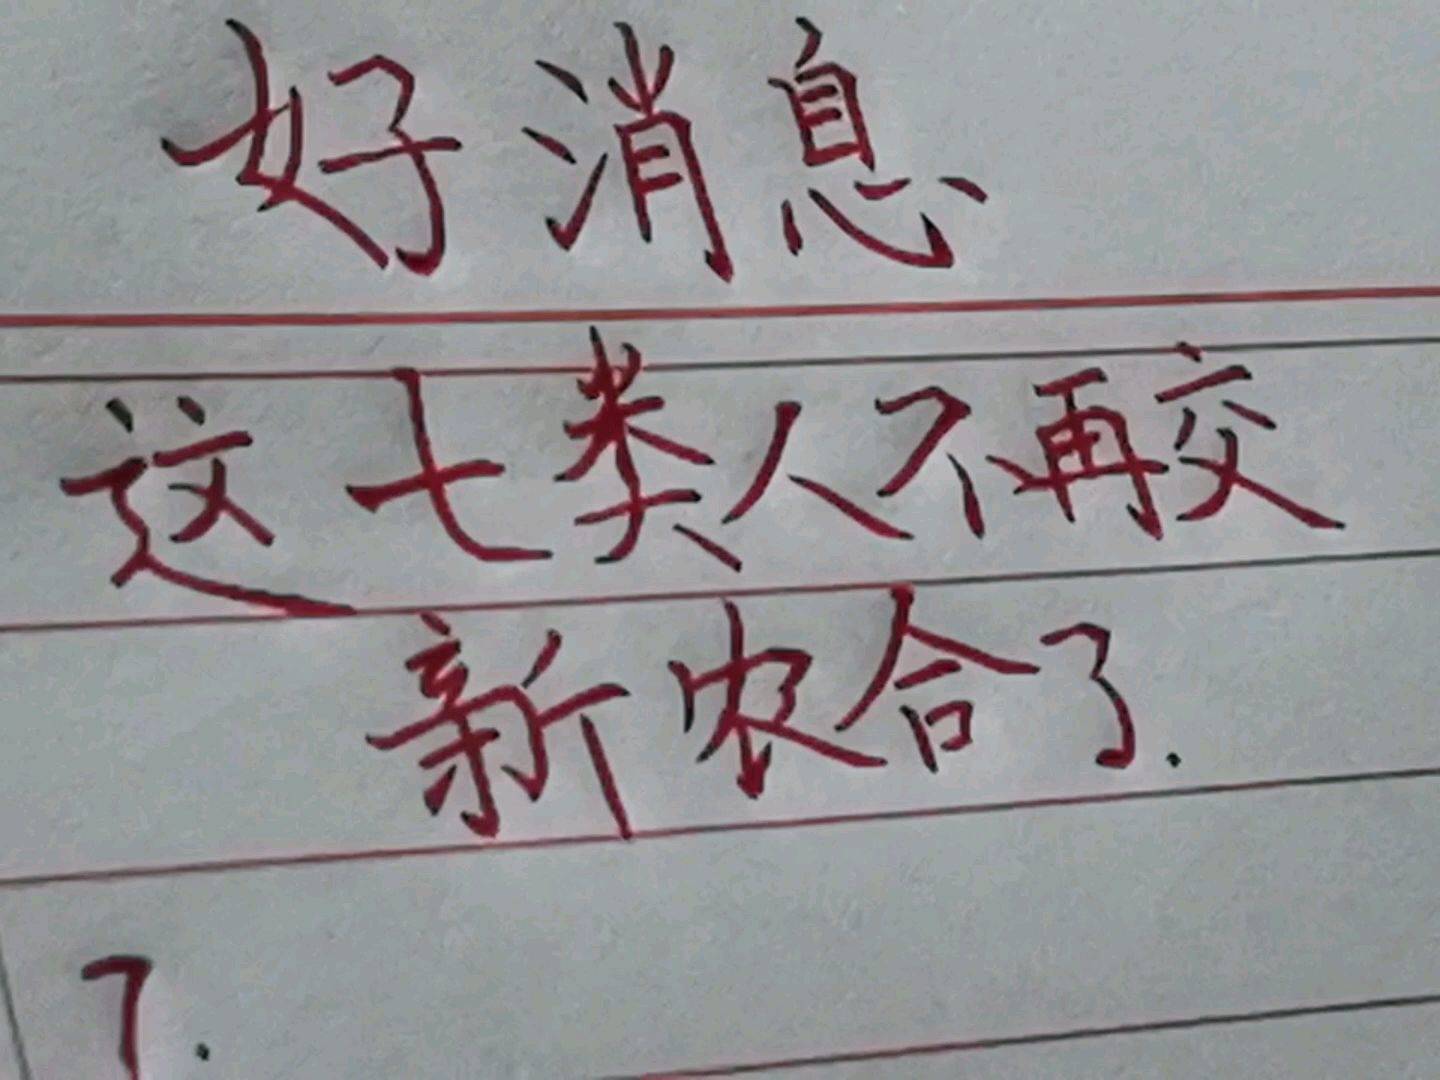 好消息
这七类人不再交
新农合了.
7.